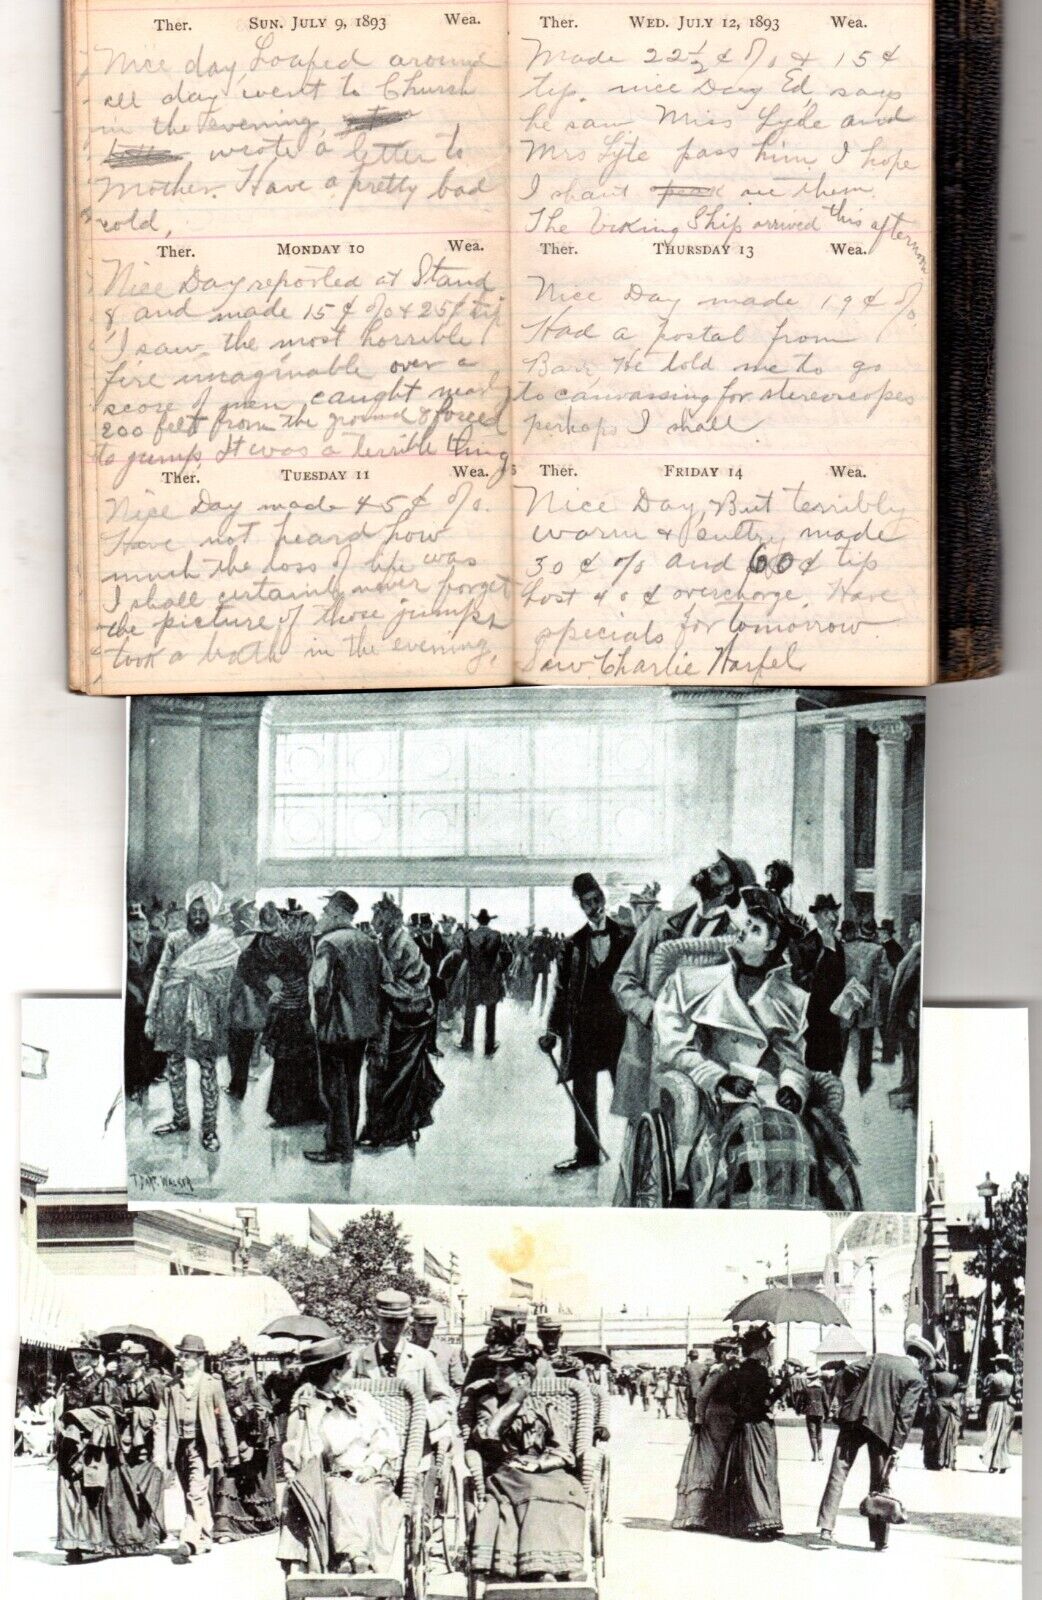 Ther. SUN. JULY 9, 1893 Wea.
Nice day, Loafed around
all day went to Church
in the evening,
wrote a letter to
Mother. Have a pretty bad
cold,
Ther. MONDAY 10 Wea.
Nice Day reported at Stand
8 and made 15¢ % & 25¢ tip
I saw the most horrible
fire imaginable over a
score of men caught nearly
200 feet from the ground & forced
to jump, It was a terrible thing
Ther. TUESDAY 11 Wea.
Nice Day made 45¢ %.
Have not heard how
much the loss of life was
I shall certainly never forget
the picture of those jumps
took a bath in the evening.
Ther. WED. JULY 12, 1893 Wea.
Made 22½¢ % & 15¢
tip. nice Day Ed, says
he saw Miss Lyde and
Mrs Lyte pass him I hope
I shant see them.
The Viking Ship arrived this afternoon
Ther. THURSDAY 13 Wea.
Nice Day made 19¢ %.
Had a postal from
He told me to go
to canvassing for stereoscopes
perhaps I shall.
Ther. FRIDAY 14 Wea.
Nice Day, But terribly
warm & sultry made
30¢ % and 60¢ tip
Lost 40¢ overcharge. Have
specials for tomorrow.
Saw Charlie Harpel
T. DART WALKER